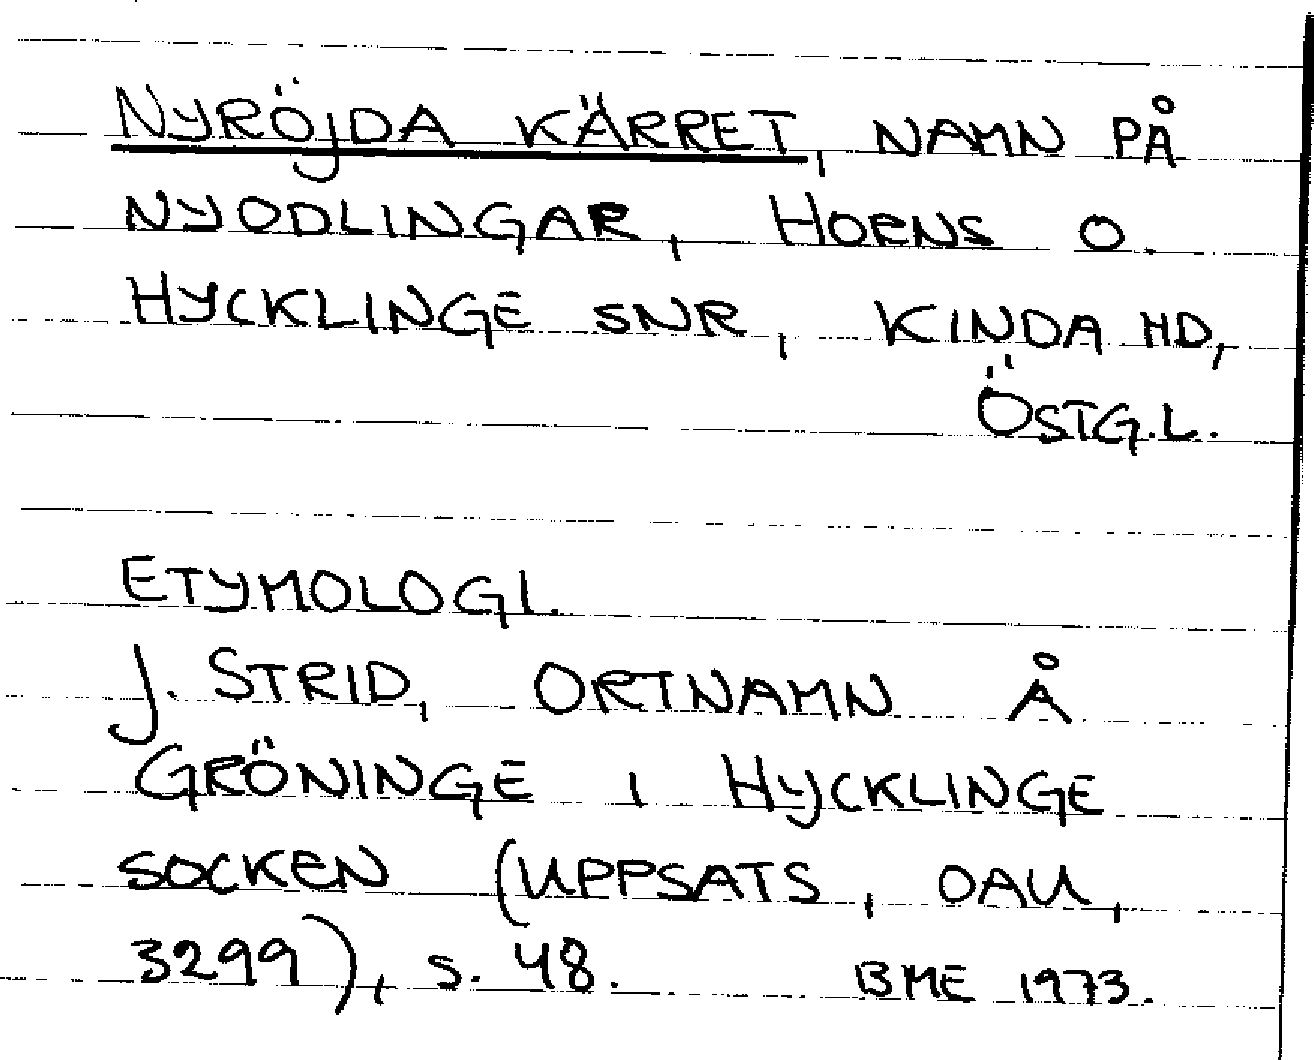 NYRÖJDA KÄRRET, NAMN PÅ
NYODLINGAR, HORNS O.
HYCKLINGE SNR, KINDA HD,
ÖSTG.L.
ETYMOLOGI.
J. STRID, ORTNAMN Å
GRÖNINGE I HYCKLINGE
SOCKEN (UPPSATS, OAU,
3299), S. 48. BME 1973.